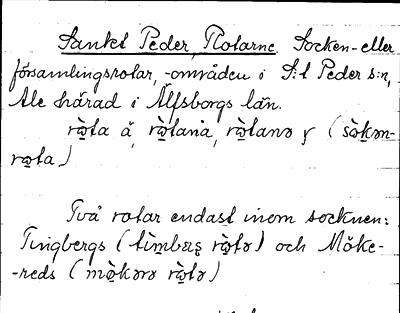 Sankt Peder, Rotarne. Socken- eller
församlingsrotar, -områden i S:t Peder s:n,
Ale härad i Älfsborgs län.
rὼta ä, rὼtana, rὼtanə γ (sòkən-
rὼta)
Två rotar endast inom socknen:
Tingbergs (tìmbærs rὼtə) och Möke-
-reds (mø̀kərə rὼtə)